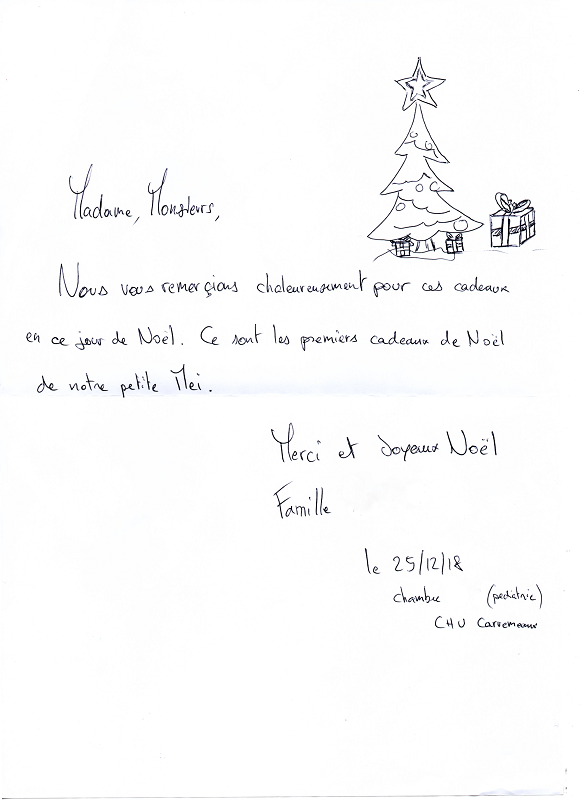 Madame, Monsieurs,
Nous vous remerçions chaleureusement pour ces cadeaux
en ce jour de Noël. Ce sont les premiers cadeaux de Noël
de notre petite Mei.
Merci et Joyeux Noël
Famille
le 25/12/18
chambre (pediatrie)
CHU Carremeaux